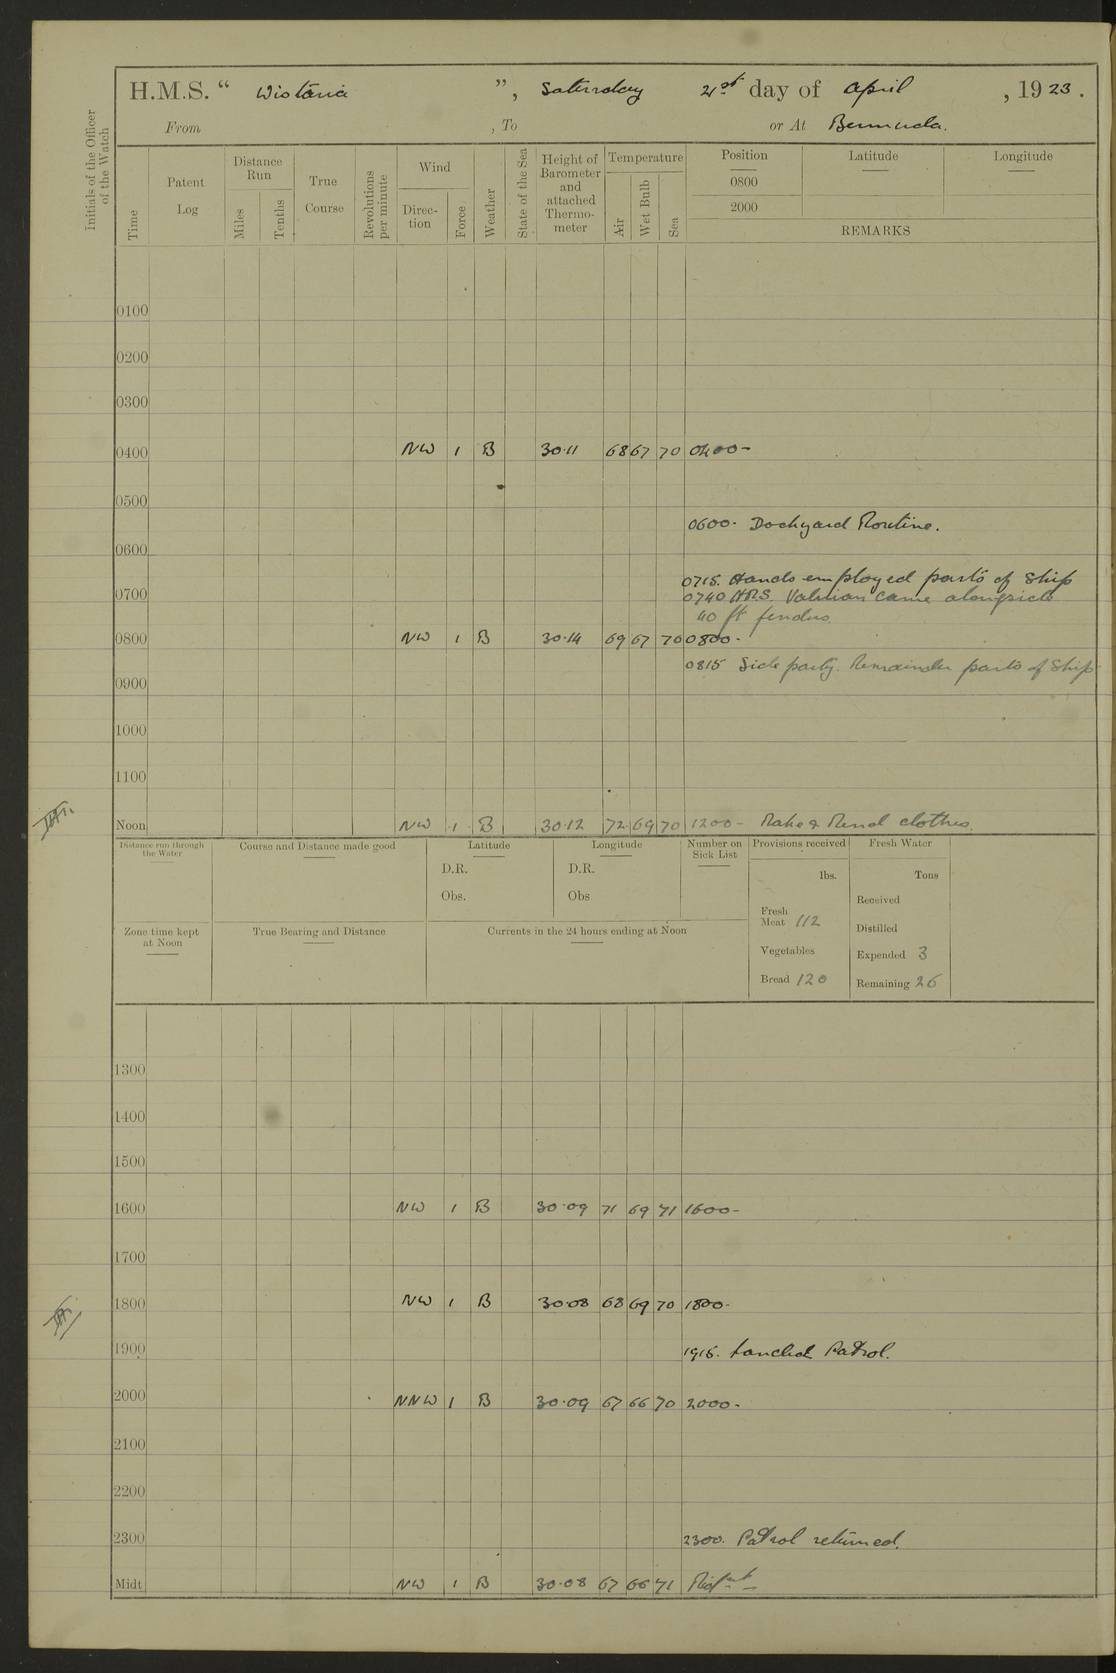 H.M.S. “ Wistaria ”, Saturday 21st day of April , 1923.
From , To or At Bermuda.
Initials of the Officer of the Watch
Time
Patent Log
Distance Run
Miles
Tenths
True Course
Revolutions per minute
Wind
Direc- tion
Force
Weather
State of the Sea
Height of Barometer and attached Thermo- meter
Temperature
Air
Wet Bulb
Sea
Position Latitude Longitude
0800
2000
REMARKS
0100
0200
0300
0400 NW 1 B 30.11 68 67 70 0400-
0500
0600. Dockyard Routine.
0600
0715. Hands employed parts of Ship
0700 0740 came alongside
40 ft fenders.
0800 NW 1 B 30.14 69 67 70 0800-
0815 Side party. Remainder parts of Ship
0900
1000
1100
Noon NW 1 B 30.12 72 69 70 1200- Make & Mend clothes.
Distance run through the Water
Course and Distance made good
Latitude
D.R.
Obs.
Longitude
D.R.
Obs
Number on Sick List
Provisions received
lbs.
Fresh Meat 112
Vegetables
Bread 120
Fresh Water
Tons
Received
Distilled
Expended 3
Remaining 26
Zone time kept at Noon
True Bearing and Distance
Currents in the 24 hours ending at Noon
1300
1400
1500
1600 NW 1 B 30.09 71 69 71 1600-
1700
1800 NW 1 B 30.08 68 69 70 1800-
1900 1915. Landed Patrol.
2000 NNW 1 B 30.09 67 66 70 2000-
2100
2200
2300 2300. Patrol returned.
Midt NW 1 B 30.08 67 66 71 Midnt-